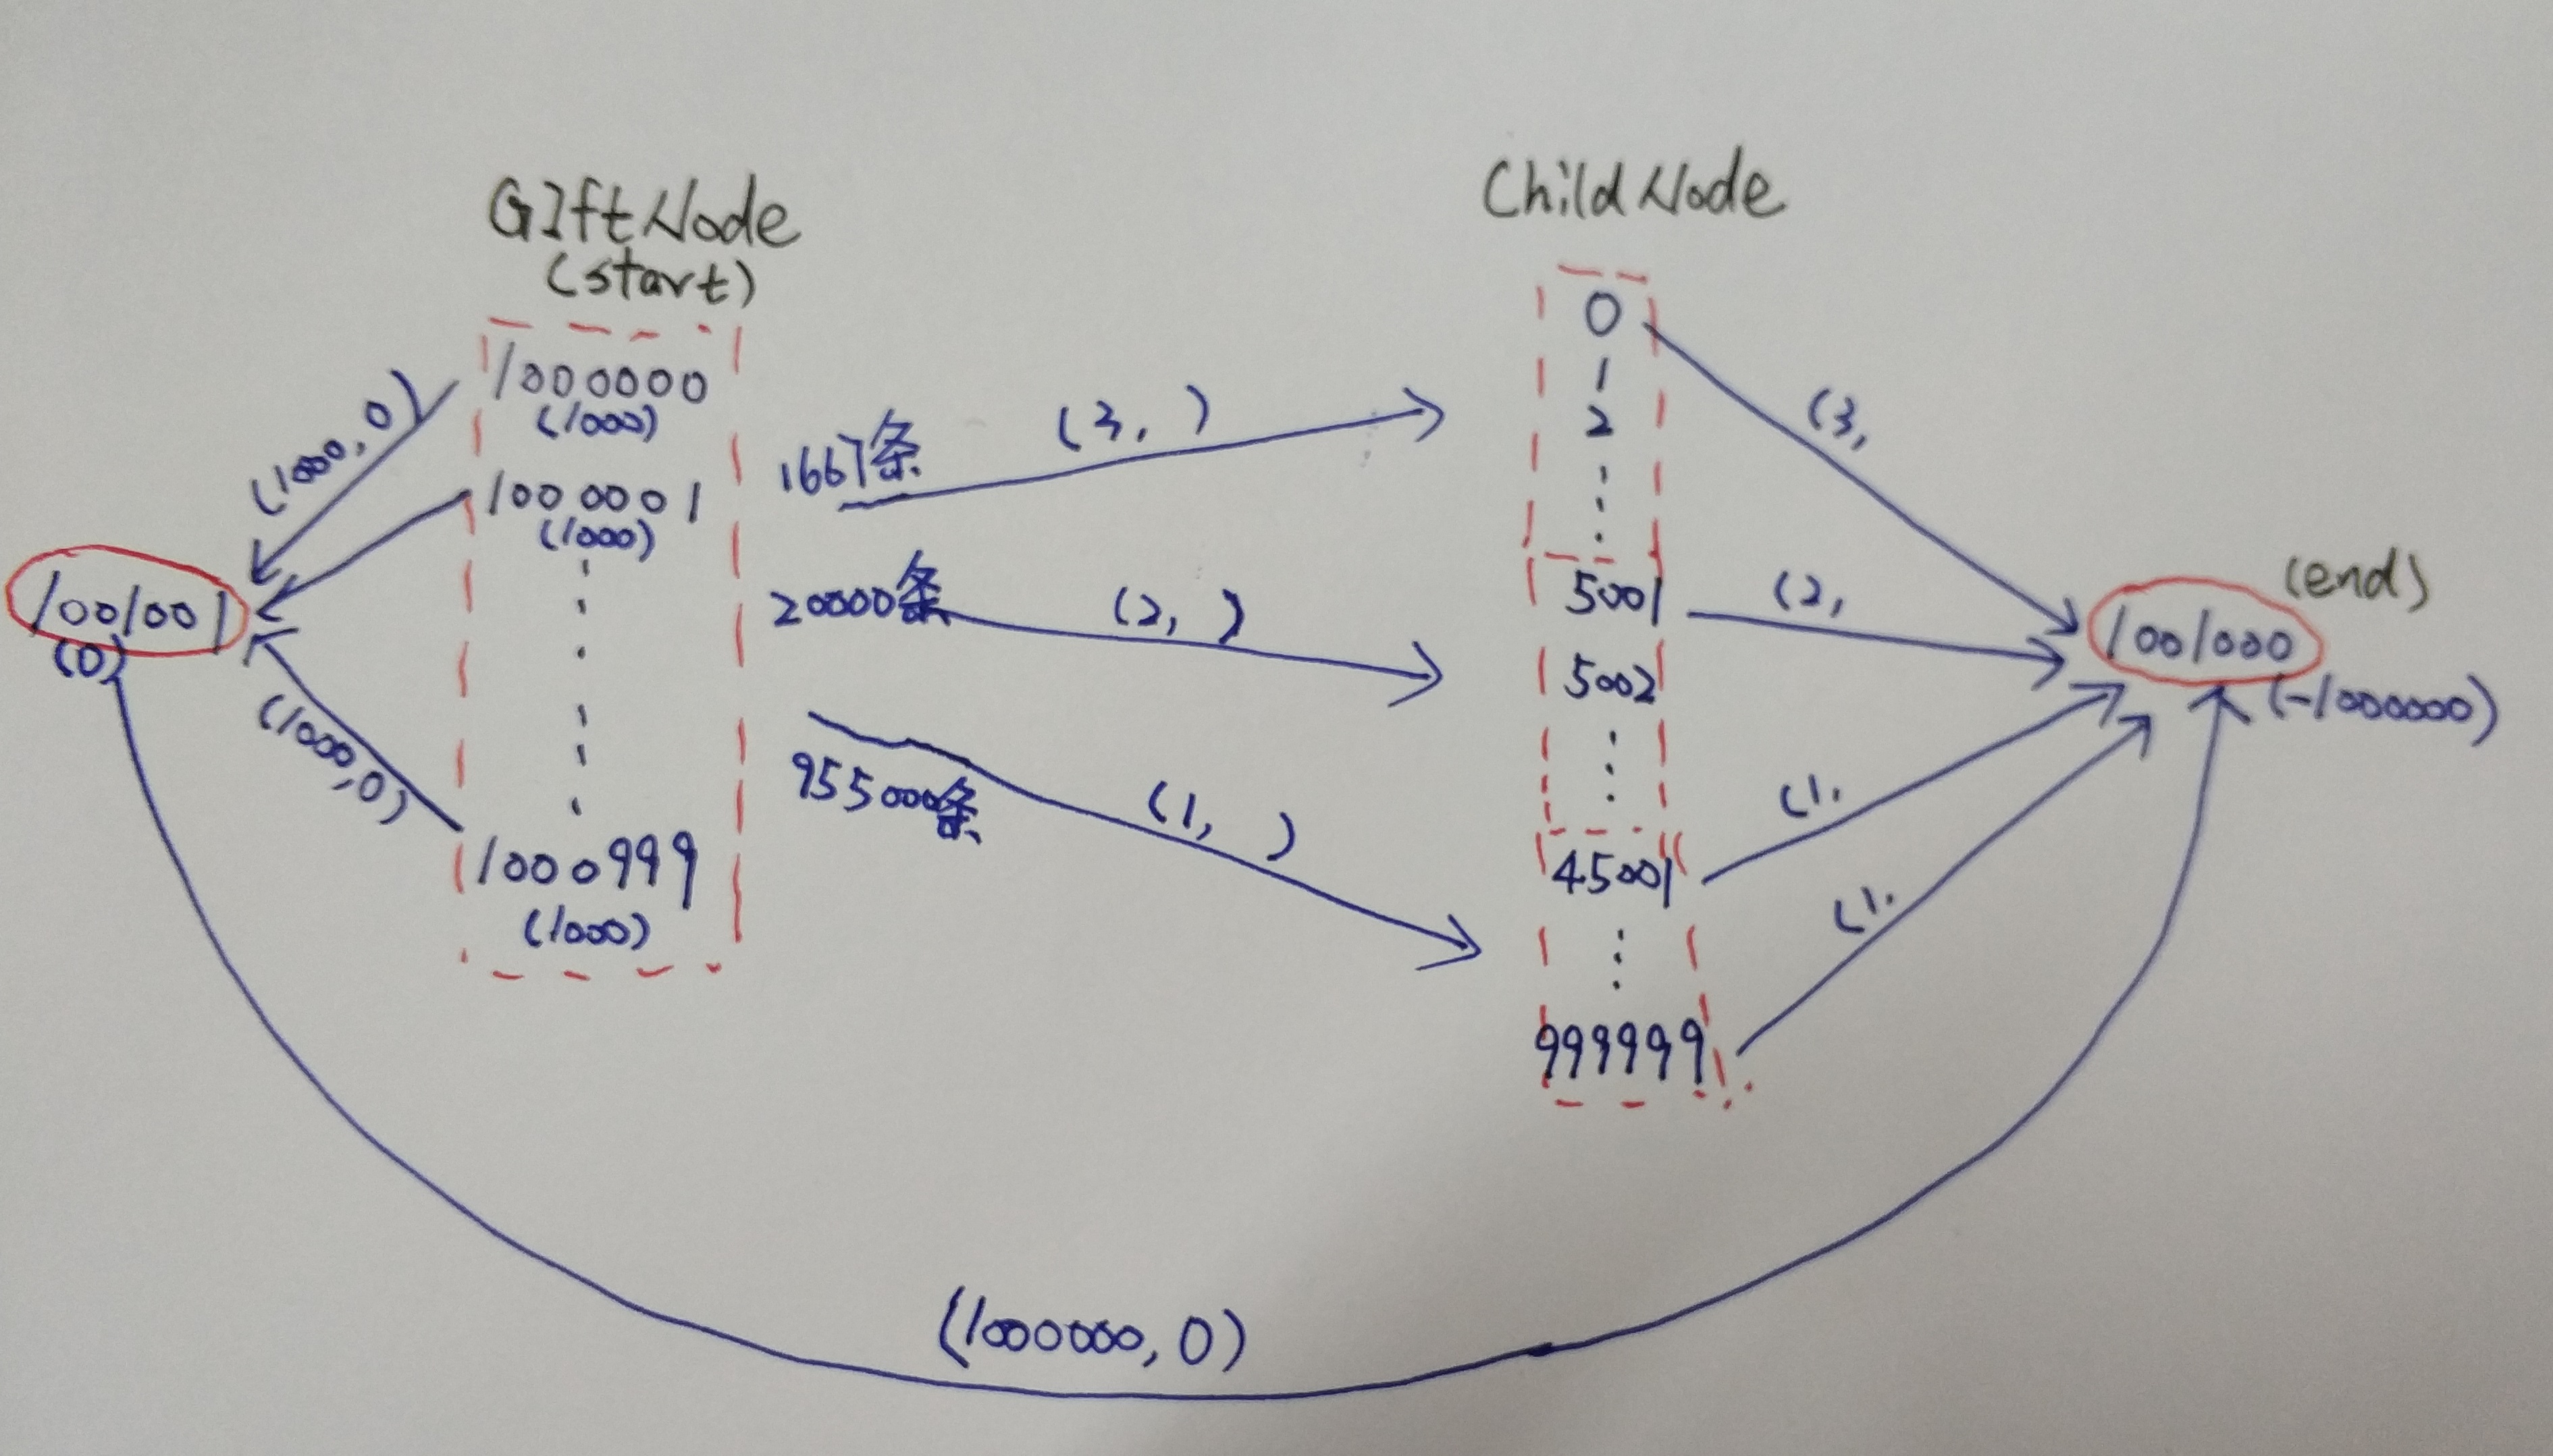 GIftNode
(start)
ChildNode
1000000
(1000)
1000001
(1000)
1000999
(1000)
(1000,0)
(1000,0)
1001001
(0)
1667条
(3, )
20000条
(2, )
955000条
(1, )
0
1
2
5001
5002
45001
999999
(3,
(2,
(1.
(1.
(end)
1001000
(-1000000)
(1000000,0)